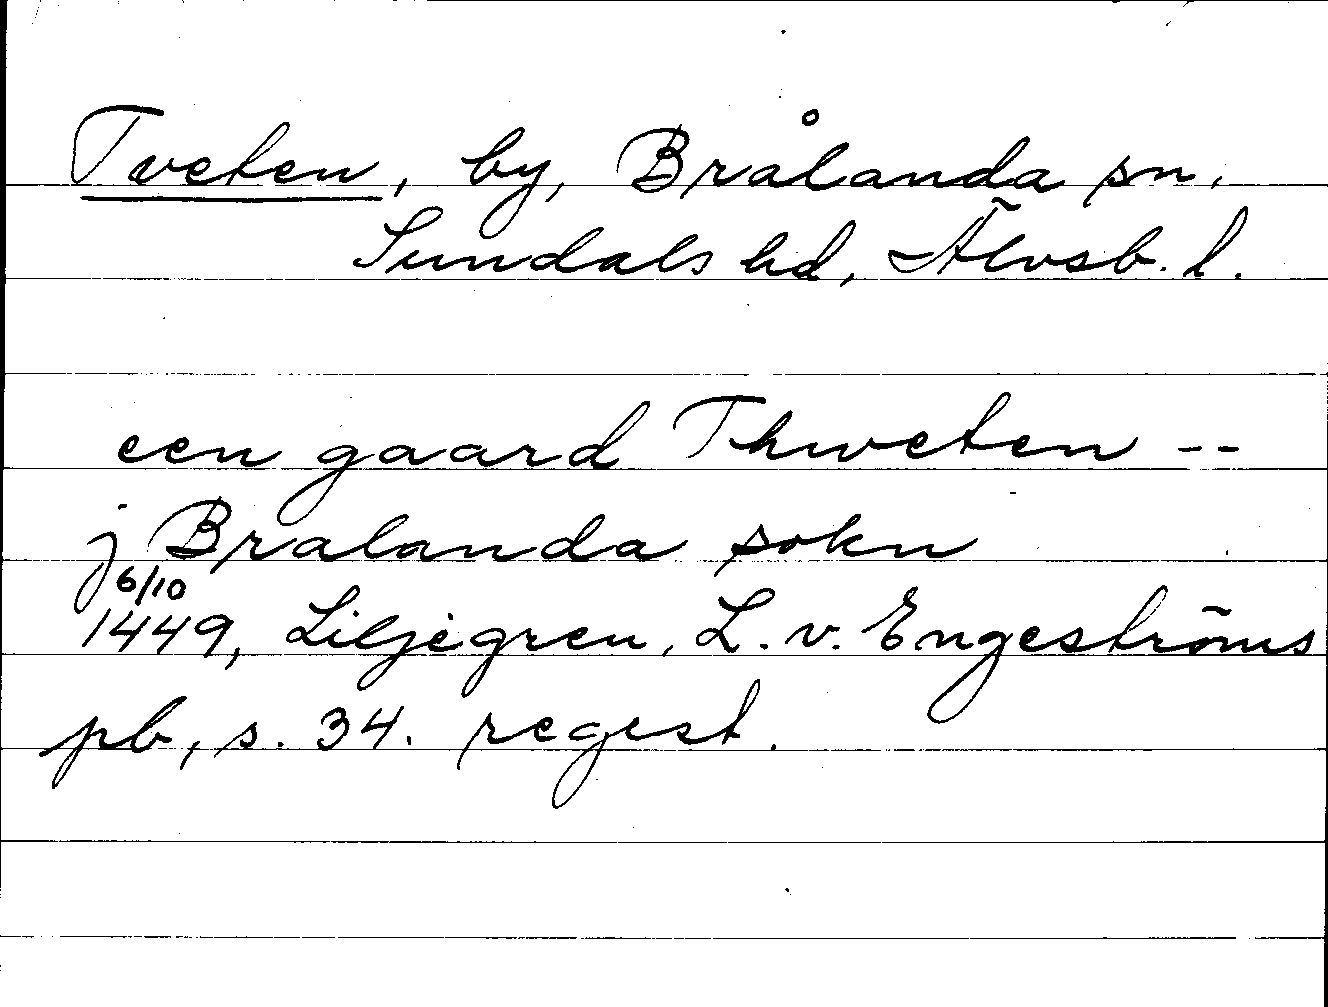 Tveten, by, Brålanda sn,
Sundals hd, Älvsb. l.
een gaard Thweten --
j Bralanda sokn
6/10
1449, Liljegren, L. v. Engeströms
pb, s. 34. regest.